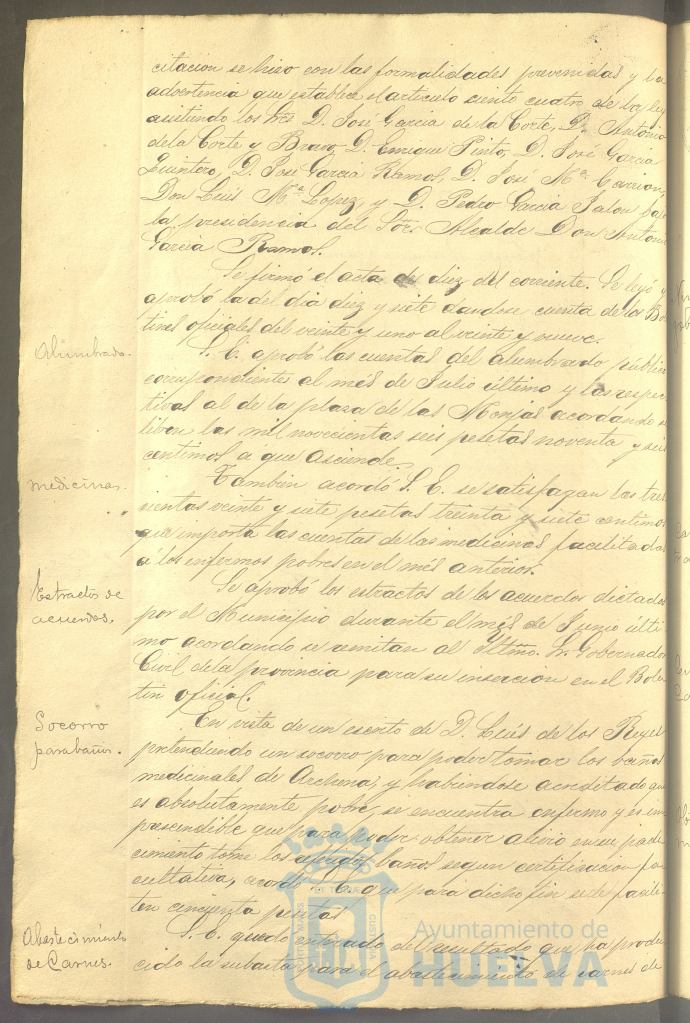 citacion se hizo con las formalidades prevenidas y la
advertencia que establece el articulo ciento cuatro de la ley
asistiendo los Sres D. José Garcia de la Corte, D. Antonio
de la Corte y Bravo, D. Enrique Pinto, D. José Garcia
Quintero, D. José Garcia Ramos, D. José Mª Carrion,
Don Luis Mª Lopez, y D. Pedro Garcia Jalon bajo
la presidencia del Sor. Alcalde Don Antonio
Garcia Ramos.
Se firmó el acta del diez del corriente. Se leyó y
aprobó la del dia diez y siete dandose cuenta de los Bole
tines oficiales del veinte y uno al veinte y nueve.
Alumbrado.
S. E. aprobó las cuentas del alumbrado público
correspondientes al més de Julio último y las respec
tivas al de la plaza de las Monjas acordando se
libren las mil novecientas seis pesetas noventa y seis
centimos a que asciende.
Medicinas.
Tambien acordó S. E. se satisfagan las tres
cientas veinte y siete pesetas treinta y siete centimos
que importa las cuentas de las medicinas facilitadas
á los enfermos pobres en el més anterior.
Extractos de
acuerdos.
Se aprobó los estractos de los acuerdos dictados
por el Municipio durante el més de Junio últi
mo acordando se remitan al Iltmo. Sr. Gobernador
Civil de la provincia para su insercion en el Bole
tin oficial.
Socorro
para baños.
En vista de un escrito de D. Luis de los Reyes
pretendiendo un socorro para poder tomar los baños
medicinales de Archena, y habiéndose acreditado que
es absolutamente pobre, se encuentra enfermo y es im
prescindible que para poder obtener alivio en su pade
cimiento tome los baños segun certificacion fa
cultativa, acordó S. E. que para dicho fin se le facili
ten cincuenta pesetas
Abastecimiento
de Carnes.
S. E. quedó enterado del resultado que ha produ
cido la subasta para el abastecimiento de carnes de
Ayuntamiento de
HUELVA